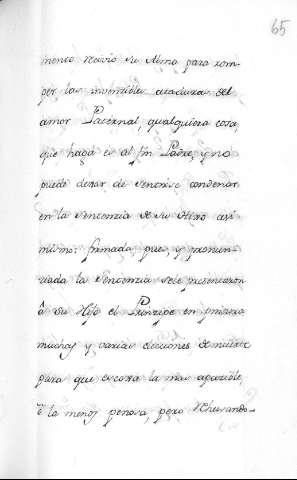 65
menos Navio su Alma para rom-
per las invencibles ataduras del
amor Paternal, qualquiera cosa
que haga es al fin Padre, y no
puede dexar de sentirse condenar
en la Sentencia de su Hixo asi
mismo: firmada, pues, y pronun-
ciada la Sentencia se le presentaron
â su Hijo el Principe en pintura
muchos y varias elecciones de muerte
para que escoxa la mas apacible,
ô la menos penosa, pero rehusando-